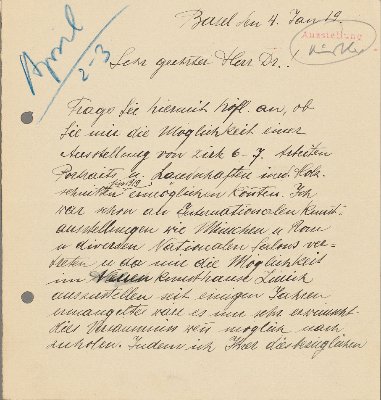 April
2-3
Basel den 4. Jan 19.
Ausstellung
Sehr geehrter Herr Dr. !
Frage Sie hiermit höfl. an, ob
Sie mir die Möglichkeit einer
Ausstellung von zirk 6-7. Arbeiten
Portraits u. Landschaften
ermöglichen könten. Ich
war schon an Internationalen Kunst-
ausstellungen wie München u Rom
u diversen Nationalen Salons ver-
treten u da mir die Möglichkeit
im Neuen Kunsthause Zürich
auszustellen seit einigen Jahren
ermangelte wäre es mir sehr erwünscht
dies Versäumnis wenn möglich nach
zuholen. Indem ich Ihrer diesbezüglichen